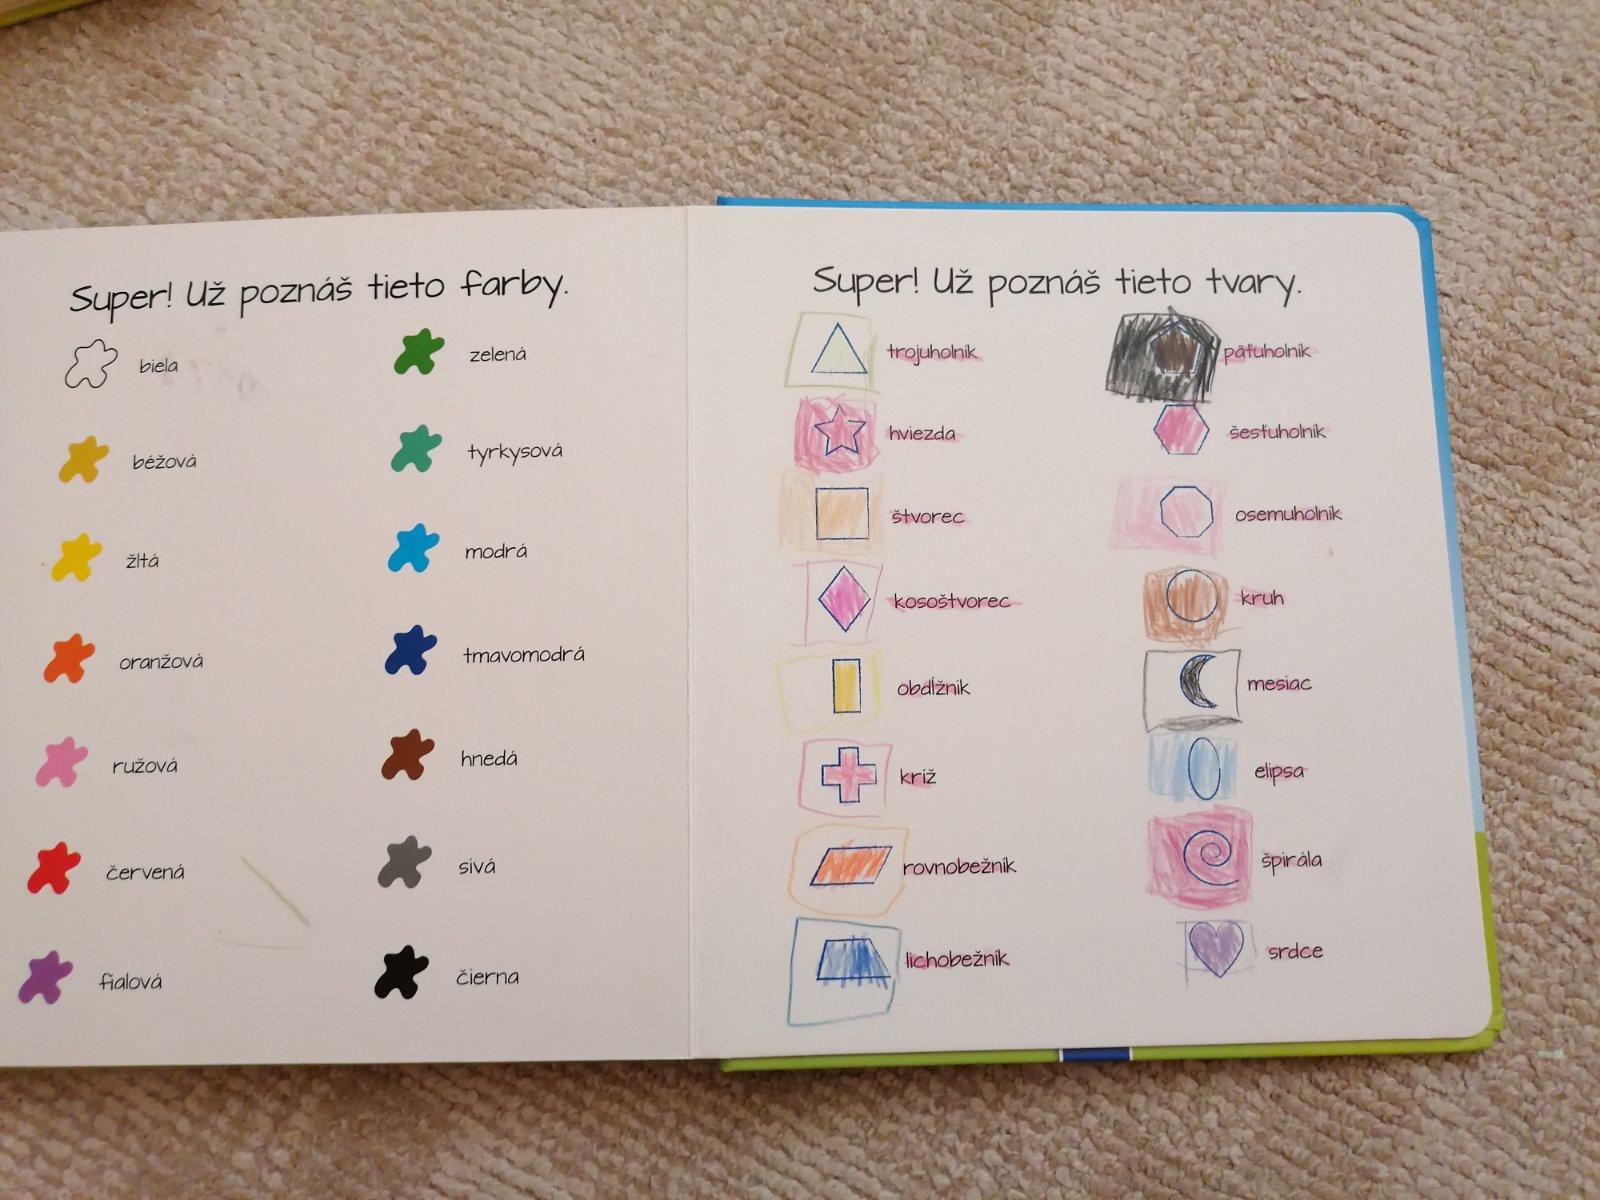 Super! Už poznáš tieto farby.
biela
béžová
žltá
oranžová
ružová
červená
fialová
zelená
tyrkysová
modrá
tmavomodrá
hnedá
sivá
čierna
Super! Už poznáš tieto tvary.
trojuholník
hviezda
štvorec
kosoštvorec
obdĺžnik
kríž
rovnobežník
lichobežník
päťuholník
šesťuholník
osemuholník
kruh
mesiac
elipsa
špirála
srdce